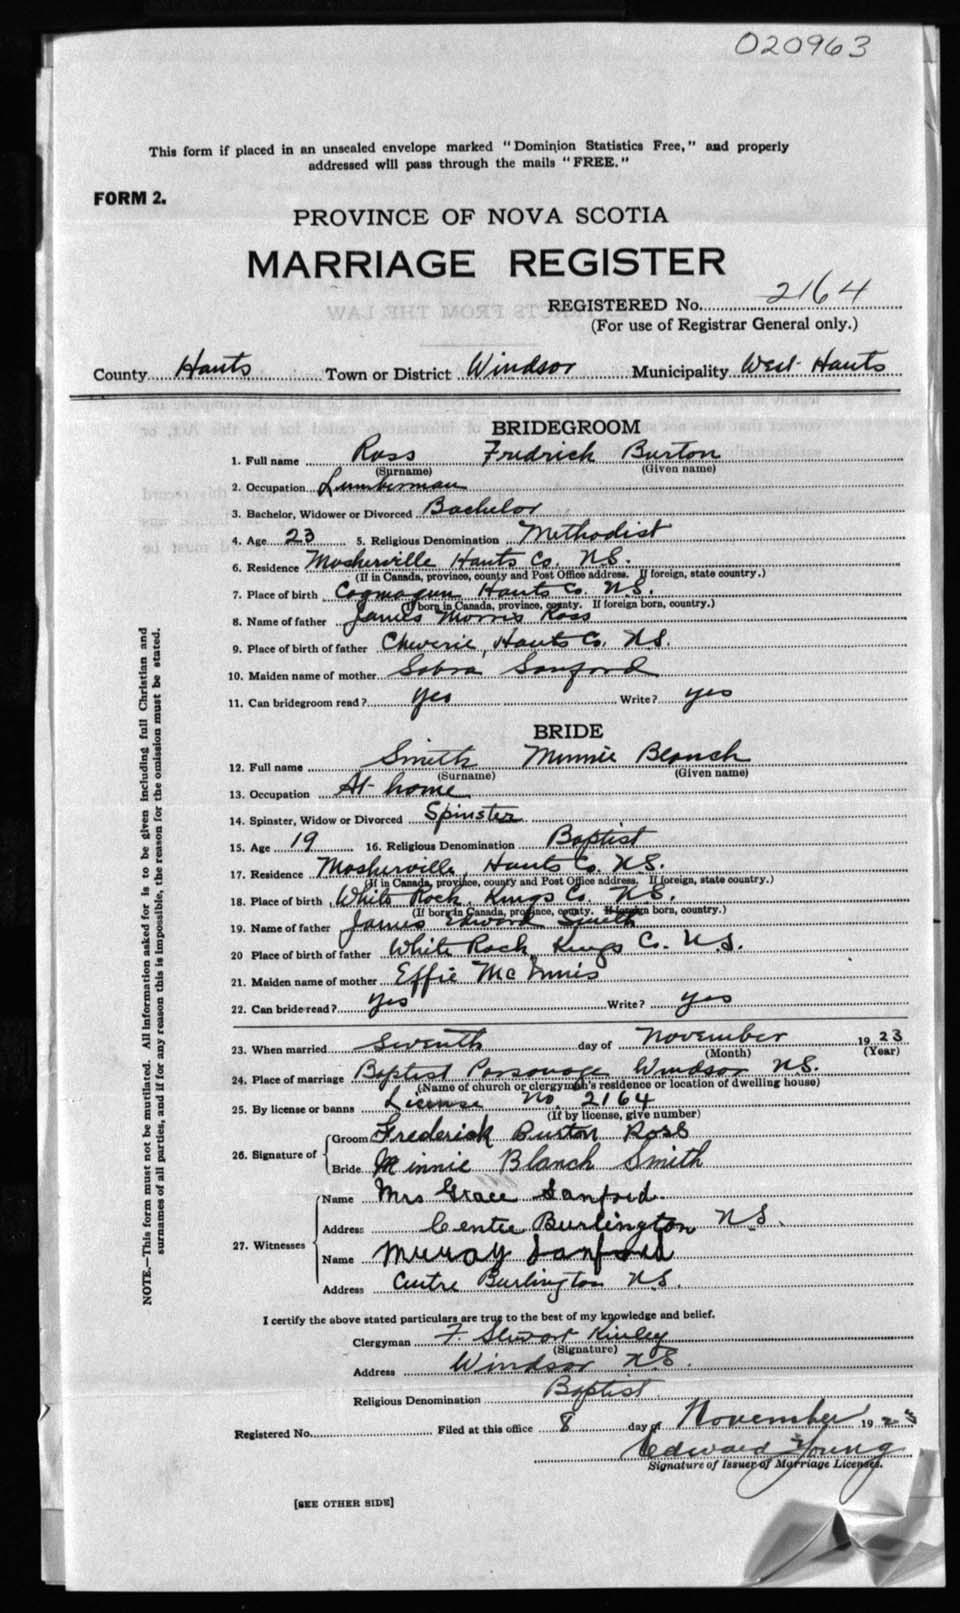 020963
This form if placed in an unsealed envelope marked "Dominion Statistics Free," and properly
addressed will pass through the mails "FREE."
FORM 2.
PROVINCE OF NOVA SCOTIA
MARRIAGE REGISTER
REGISTERED No. 2164
(For use of Registrar General only.)
County Hants Town or District Windsor Municipality West Hants
BRIDEGROOM
1. Full name Ross Fredrick Burton
(Surname) (Given name)
2. Occupation Lumberman
3. Bachelor, Widower or Divorced Bachelor
4. Age 23 5. Religious Denomination Methodist
6. Residence Mosherville Hants Co. N.S.
(If in Canada, province, county and Post Office address. If foreign, state country.)
7. Place of birth Cogmagun Hants Co. N.S.
(If born in Canada, province, county. If foreign born, country.)
8. Name of father James Morris Ross
9. Place of birth of father Cheverie, Hants Co. N.S.
10. Maiden name of mother Sabra Sanford
11. Can bridegroom read? yes Write? yes
BRIDE
12. Full name Smith Minnie Blanch
(Surname) (Given name)
13. Occupation At home
14. Spinster, Widow or Divorced Spinster
15. Age 19 16. Religious Denomination Baptist
17. Residence Mosherville, Hants Co. N.S.
(If in Canada, province, county and Post Office address. If foreign, state country.)
18. Place of birth White Rock, Kings Co. N.S.
(If born in Canada, province, county. If foreign born, country.)
19. Name of father James Edward Smith
20 Place of birth of father White Rock, Kings Co. N.S.
21. Maiden name of mother Effie McInnis
22. Can bride read? yes Write? yes
23. When married Seventh day of November 1923
(Month) (Year)
24. Place of marriage Baptist Parsonage Windsor N.S.
(Name of church or clergyman's residence or location of dwelling house)
25. By license or banns License No. 2164
(If by license, give number)
26. Signature of Groom Frederick Burton Ross
Bride Minnie Blanch Smith
27. Witnesses Name Mrs Grace Sanford
Address Centre Burlington N.S.
Name Murray Sanford
Address Centre Burlington N.S.
I certify the above stated particulars are true to the best of my knowledge and belief.
Clergyman F. Stewart Kinley
(Signature)
Address Windsor N.S.
Religious Denomination Baptist
Registered No. Filed at this office 8 day of November 1923
Edward Young
Signature of Issuer of Marriage Licenses.
[SEE OTHER SIDE]
NOTE.—This form must not be mutilated. All information asked for is to be given including full Christian and
surnames of all parties, and if for any reason this is impossible, the reason for the omission must be stated.